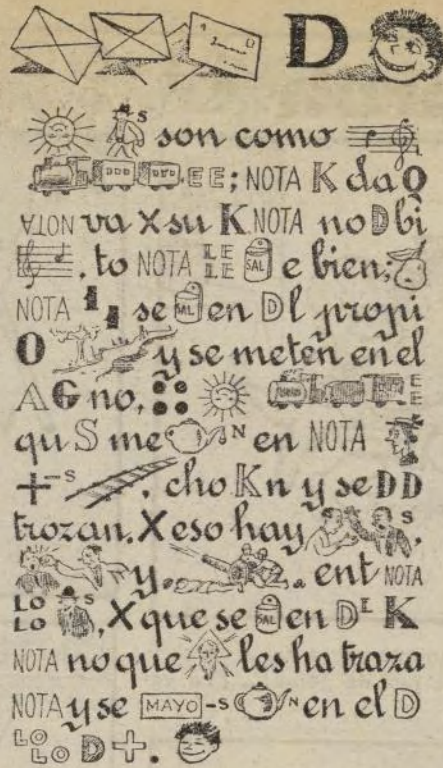 D
S son como
EE; NOTA K da O
NOTA va X su K NOTA no D bi
, to NOTA LE LE SAL e bien;
NOTA 1 1 se SAL en Dl propi
O y se meten en el
A G no, EE
qu S me N en NOTA
+ -S , cho K n y se D D
trozan. X eso hay S,
y . . ent NOTA
LO LO S, X que se SAL en DE K
NOTA no que les ha traza
NOTA y se MAYO -S N en el D
LO LO D +.